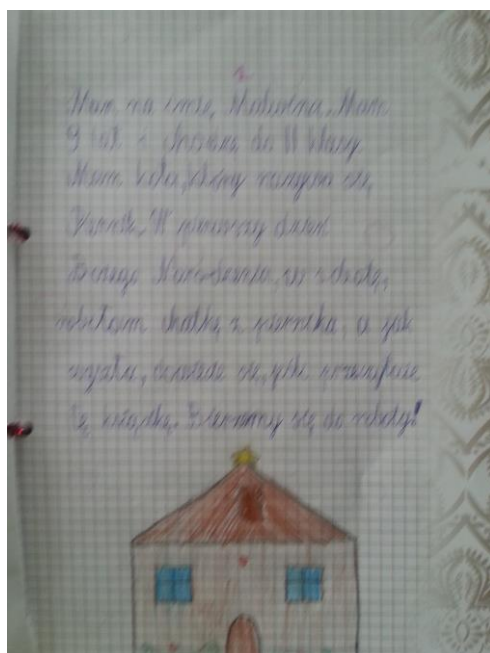 2.
Mam na imię Malwina. Mam
9 lat i chodzę do III klasy.
Mam kota, który nazywa się
W pierwszy dzień
Bożego Narodzenia, w sobotę,
robiłam chatkę z piernika. a jak
wyszła, dowiecie się, jeśli przeczytacie
tę książkę. Bierzemy się do roboty!